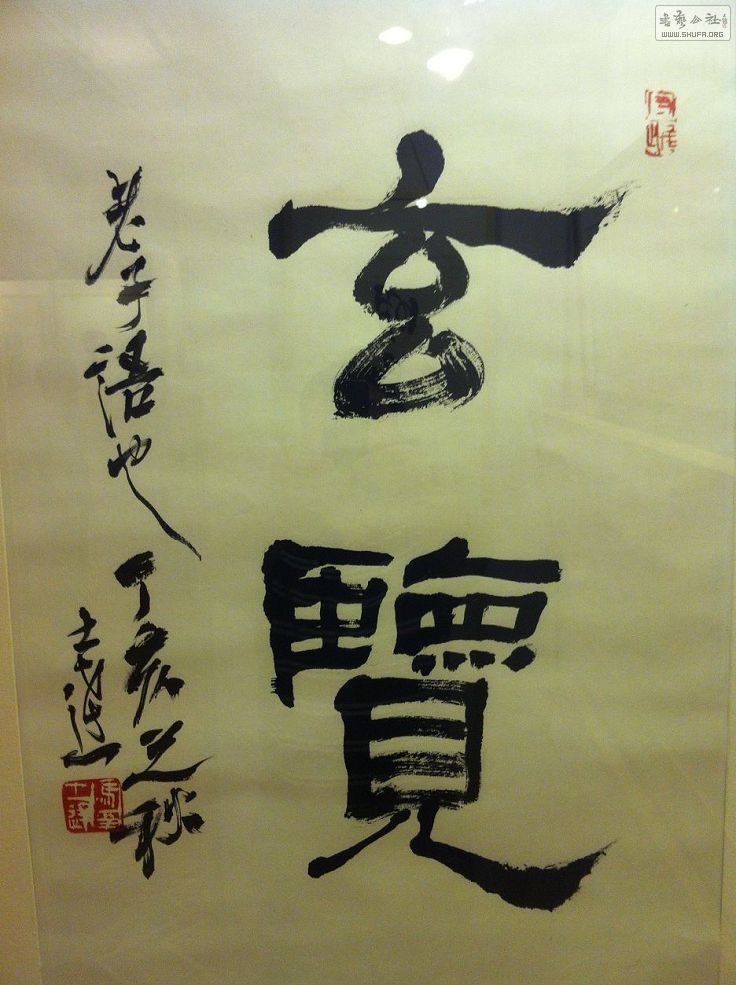 書藝公社
WWW.SHUFA.ORG
玄覽
老子語也丁亥之秋
士達